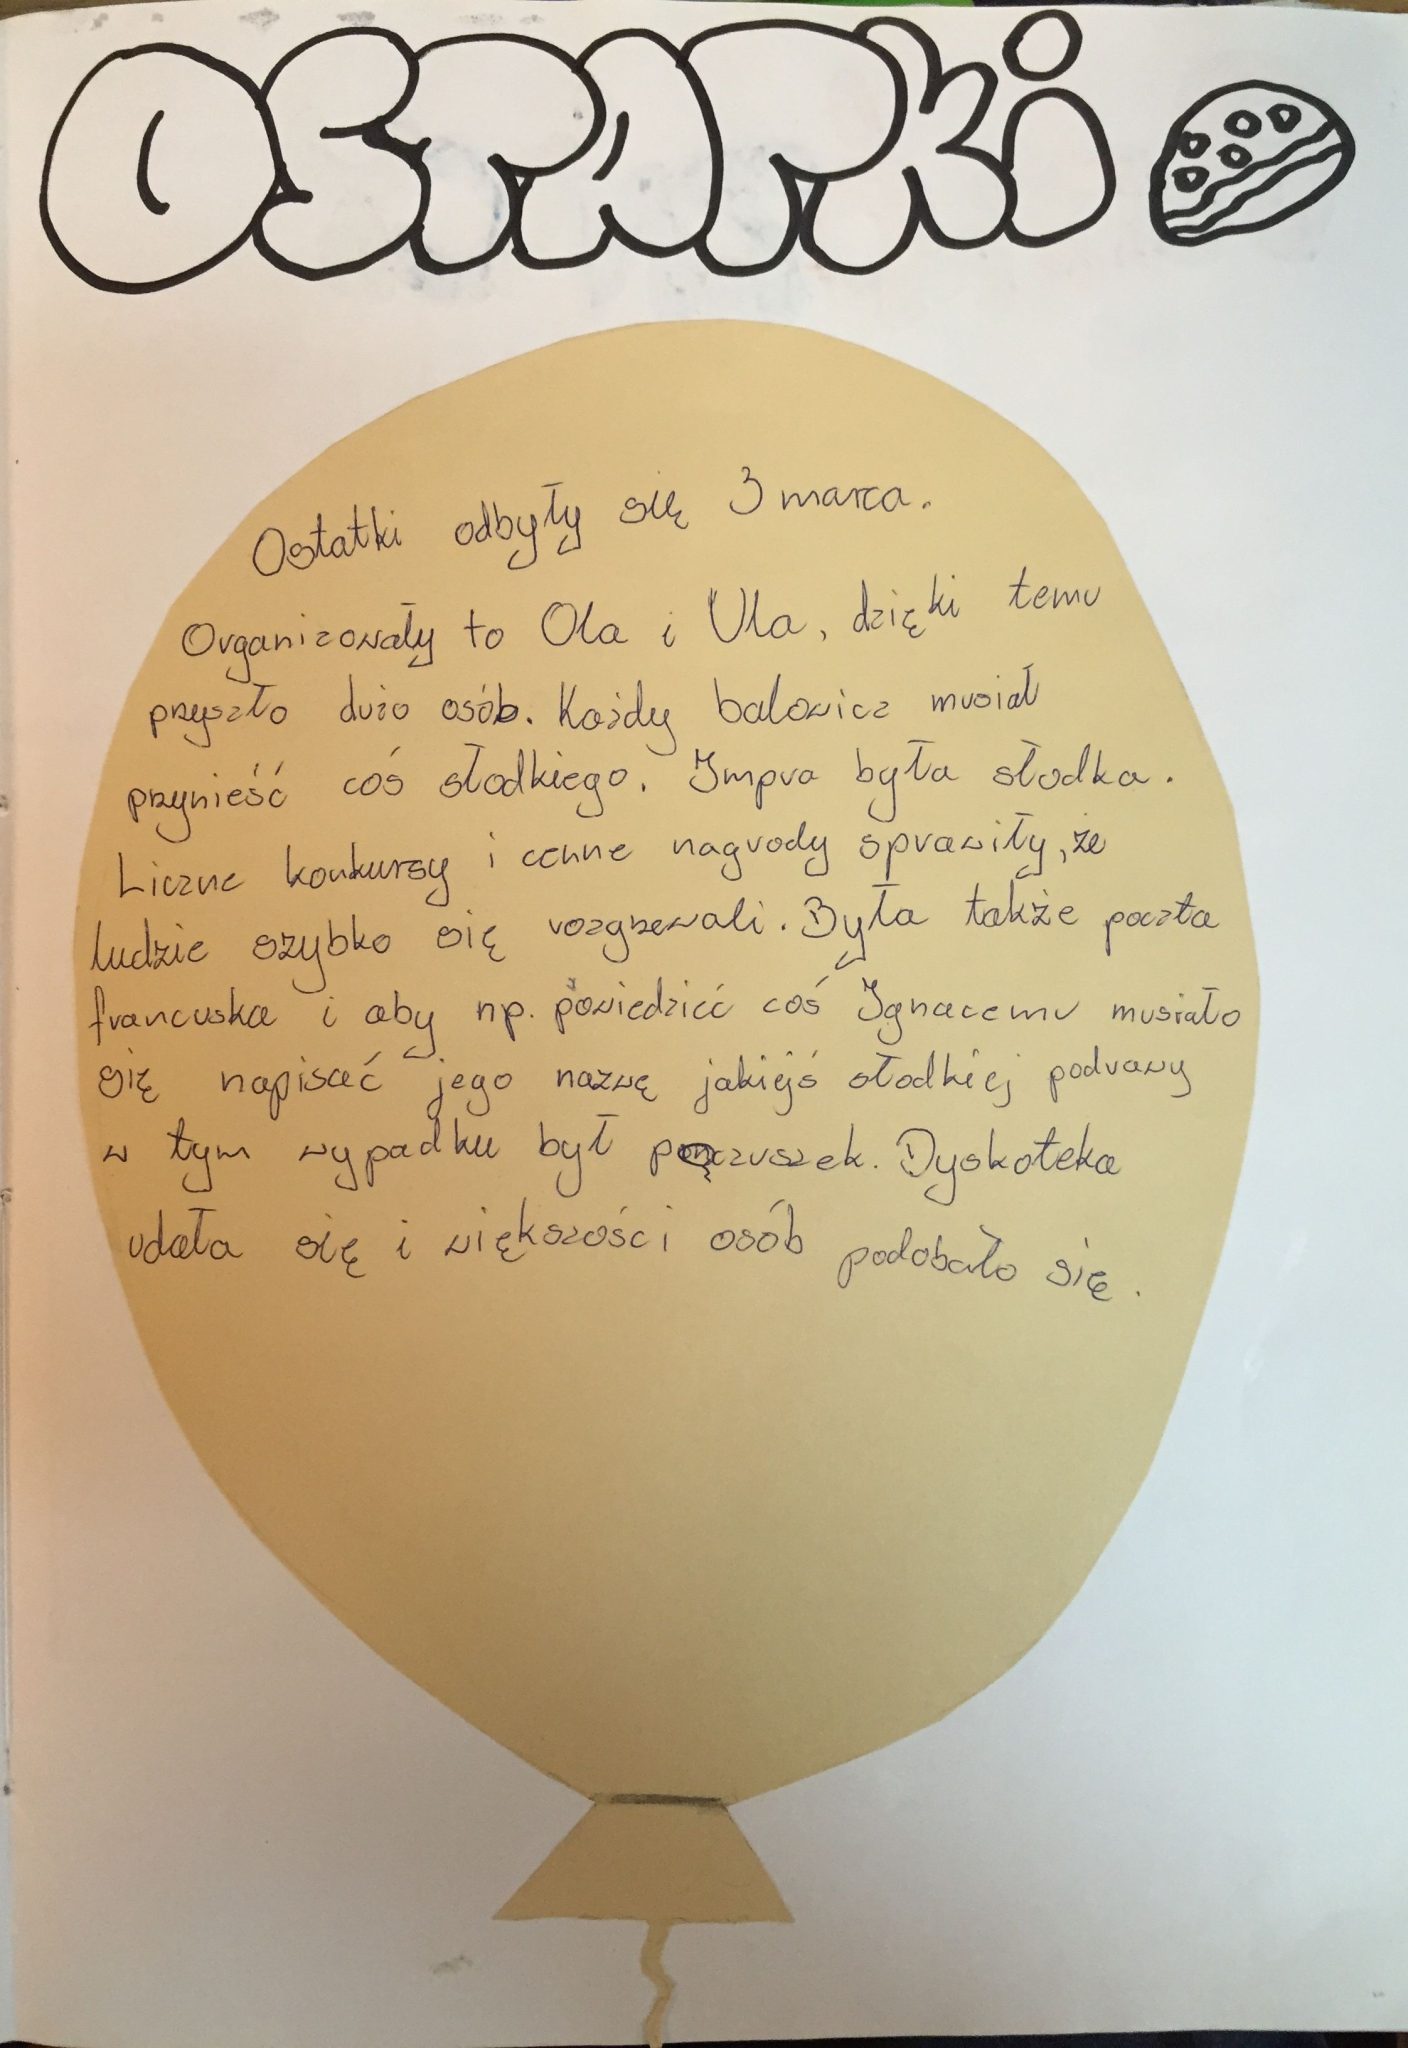 OSTATKi
Ostatki odbyły się 3 marca.
Organizowały to Ola i Ula, dzięki temu
przyszło dużo osób. Każdy balowicz musiał
przynieść coś słodkiego. Impra była słodka.
Liczne konkursy i cenne nagrody sprawiły, że
ludzie szybko się rozgrzewali. Była także poczta
francuska i aby np. powiedzieć coś Ignacemu musiało
się napisać jego nazwę jakiejś słodkiej podrawy
w tym wypadku był pączuszek. Dyskoteka
udała się i większości osób podobało się.